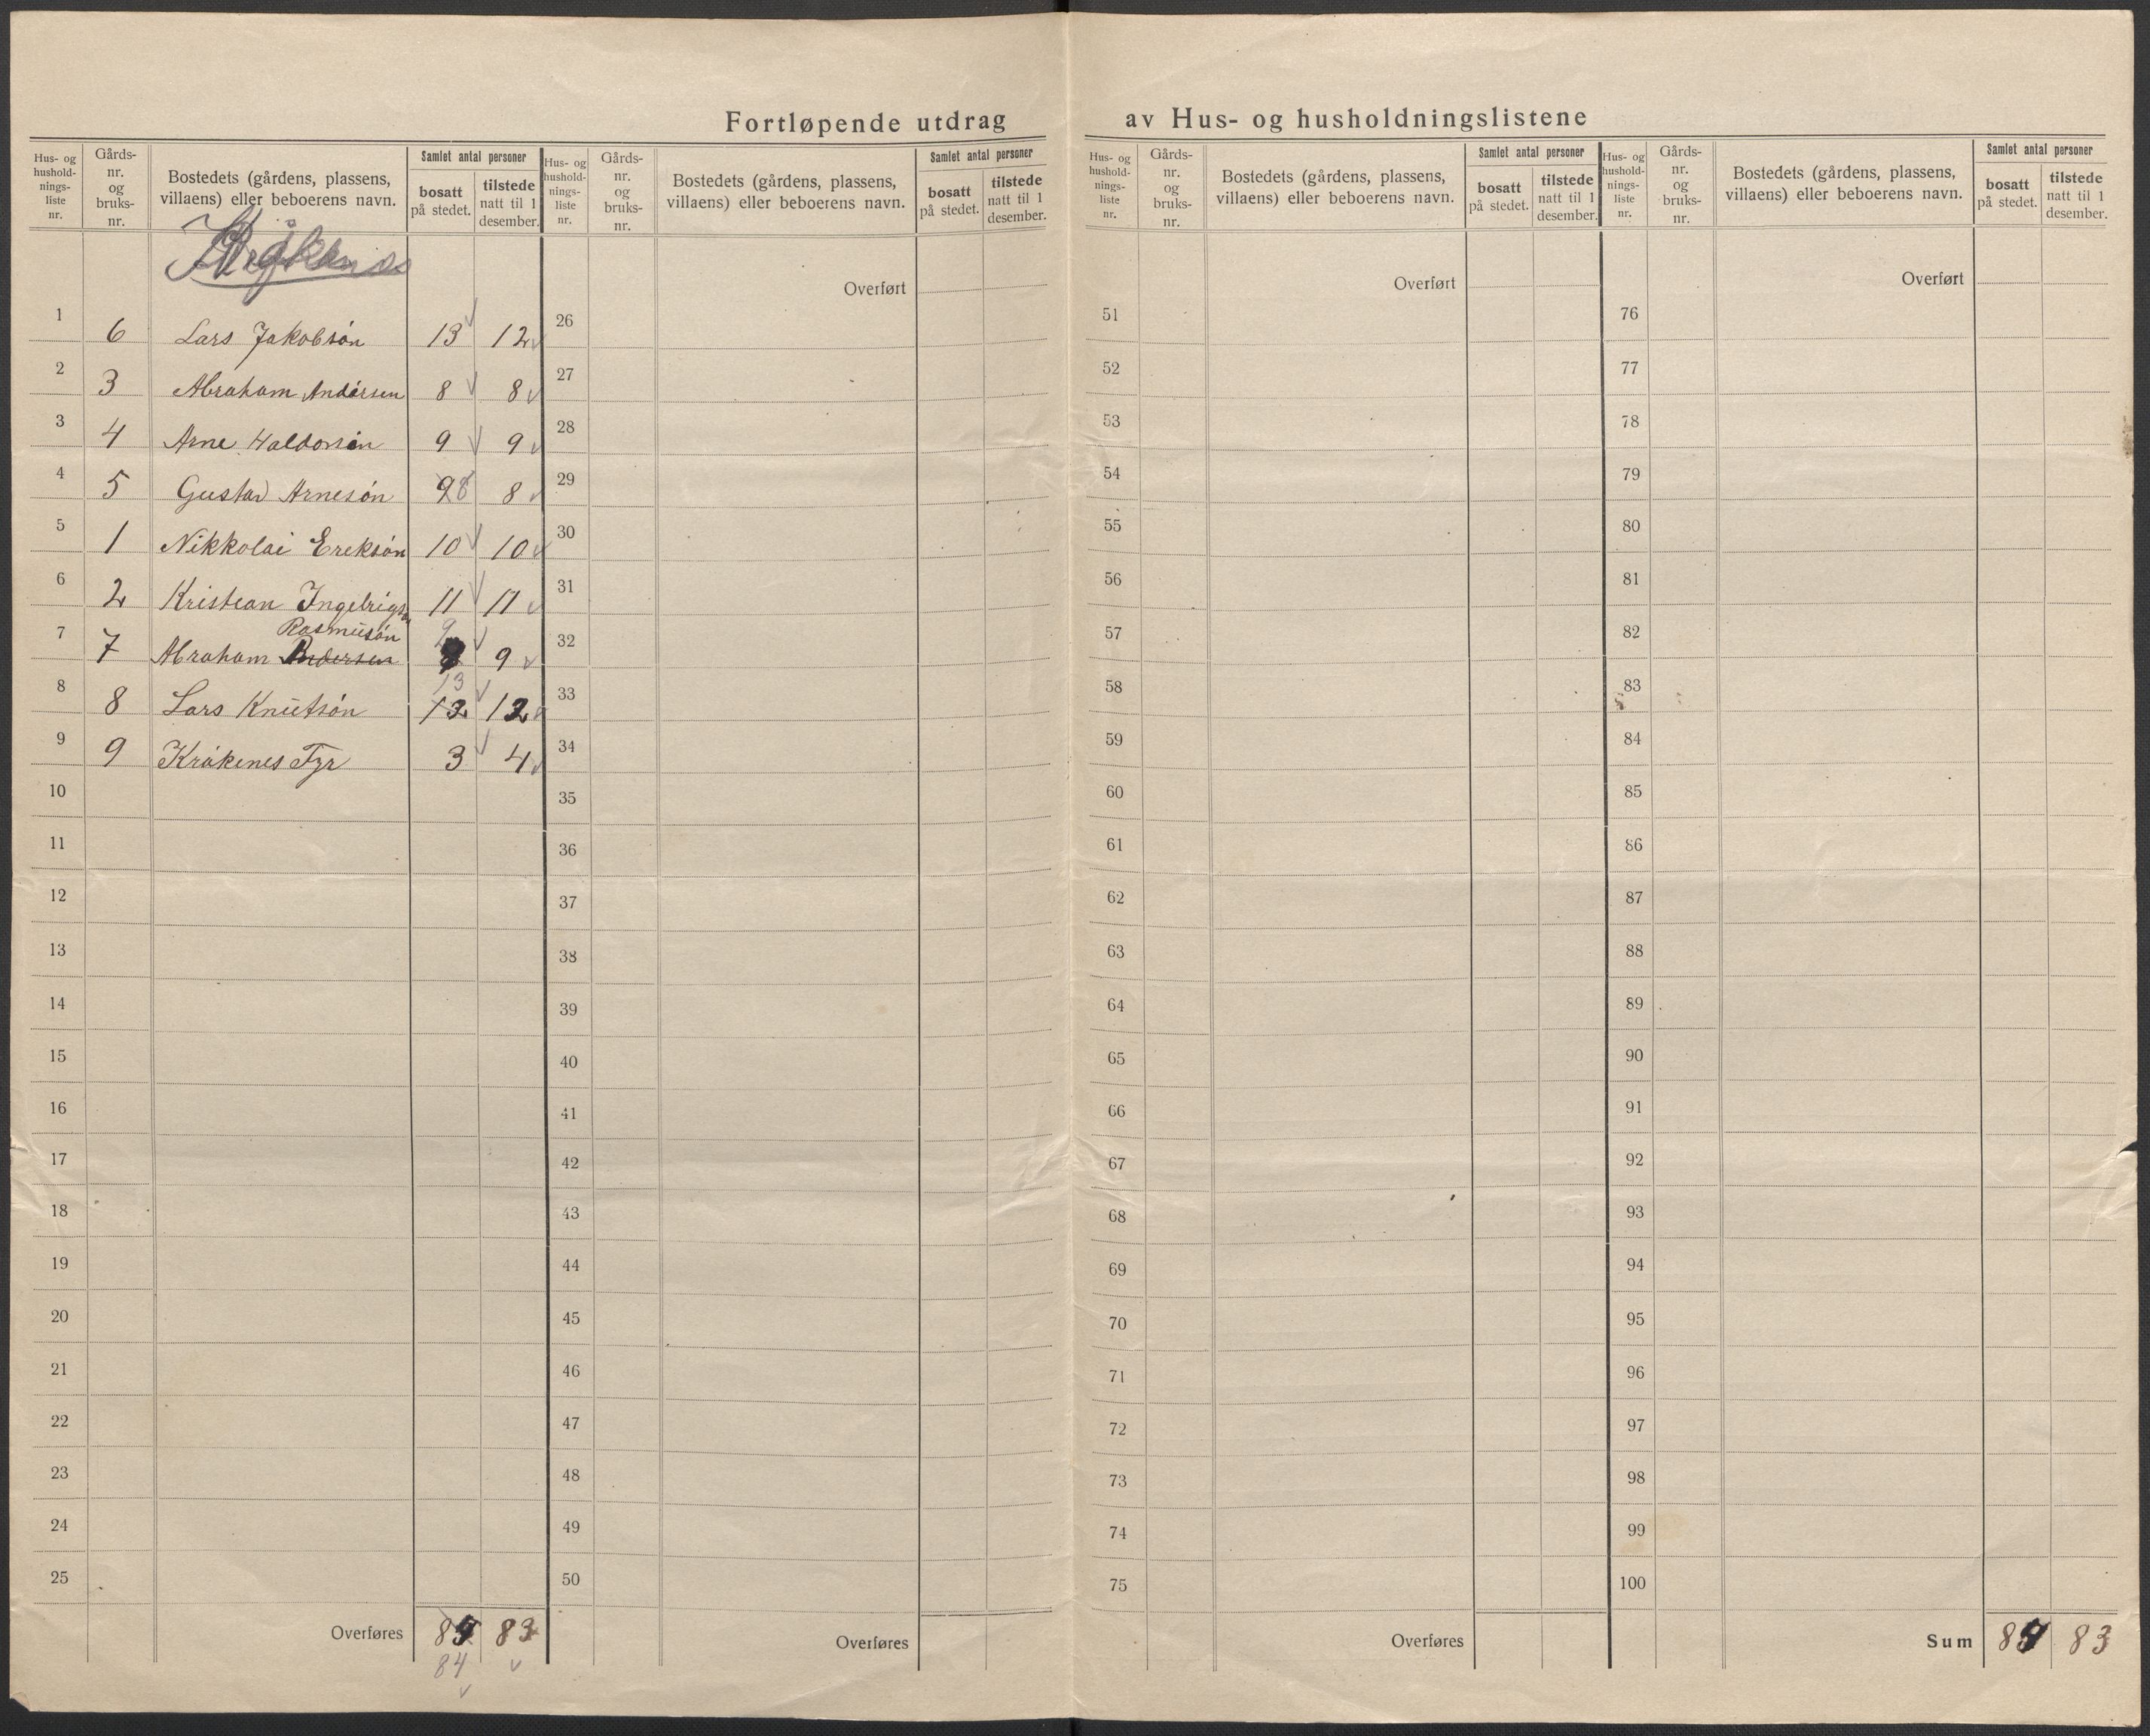 Fortløpende utdrag av Hus- og husholdningslistene
Hus- og hushold-nings-liste nr. Gårds-nr. og bruks-nr. Bostedets (gårdens, plassens, villaens) eller beboerens navn. Samlet antal personer bosatt på stedet. tilstede natt til 1 desember.
Hus- og hushold-nings-liste nr. Gårds-nr. og bruks-nr. Bostedets (gårdens, plassens, villaens) eller beboerens navn. Samlet antal personer bosatt på stedet. tilstede natt til 1 desember.
Hus- og hushold-nings-liste nr. Gårds-nr. og bruks-nr. Bostedets (gårdens, plassens, villaens) eller beboerens navn. Samlet antal personer bosatt på stedet. tilstede natt til 1 desember.
Hus- og hushold-nings-liste nr. Gårds-nr. og bruks-nr. Bostedets (gårdens, plassens, villaens) eller beboerens navn. Samlet antal personer bosatt på stedet. tilstede natt til 1 desember.
1 6 Lars Jakobsøn 13 12
2 3 Abraham Andersen 8 8
3 4 Arne Haldorsen 9 9
4 5 Gustav Arnesøn 9 8 8
5 1 Nikkolai Ereksøn 10 10
6 2 Kristean 11 11
Rasmusøn 9
7 7 Abraham Andersen 9
13
8 8 Lars Knutsøn 12 12
9 9 Kråkenes Fyr 3 4
10
11
12
13
14
15
16
17
18
19
20
21
22
23
24
25
Overføres 83
84
Overført
26
27
28
29
30
31
32
33
34
35
36
37
38
39
40
41
42
43
44
45
46
47
48
49
50
Overføres
Overført
51
52
53
54
55
56
57
58
59
60
61
62
63
64
65
66
67
68
69
70
71
72
73
74
75
Overføres
Overført
76
77
78
79
80
81
82
83
84
85
86
87
88
89
90
91
92
93
94
95
96
97
98
99
100
Sum 84 83